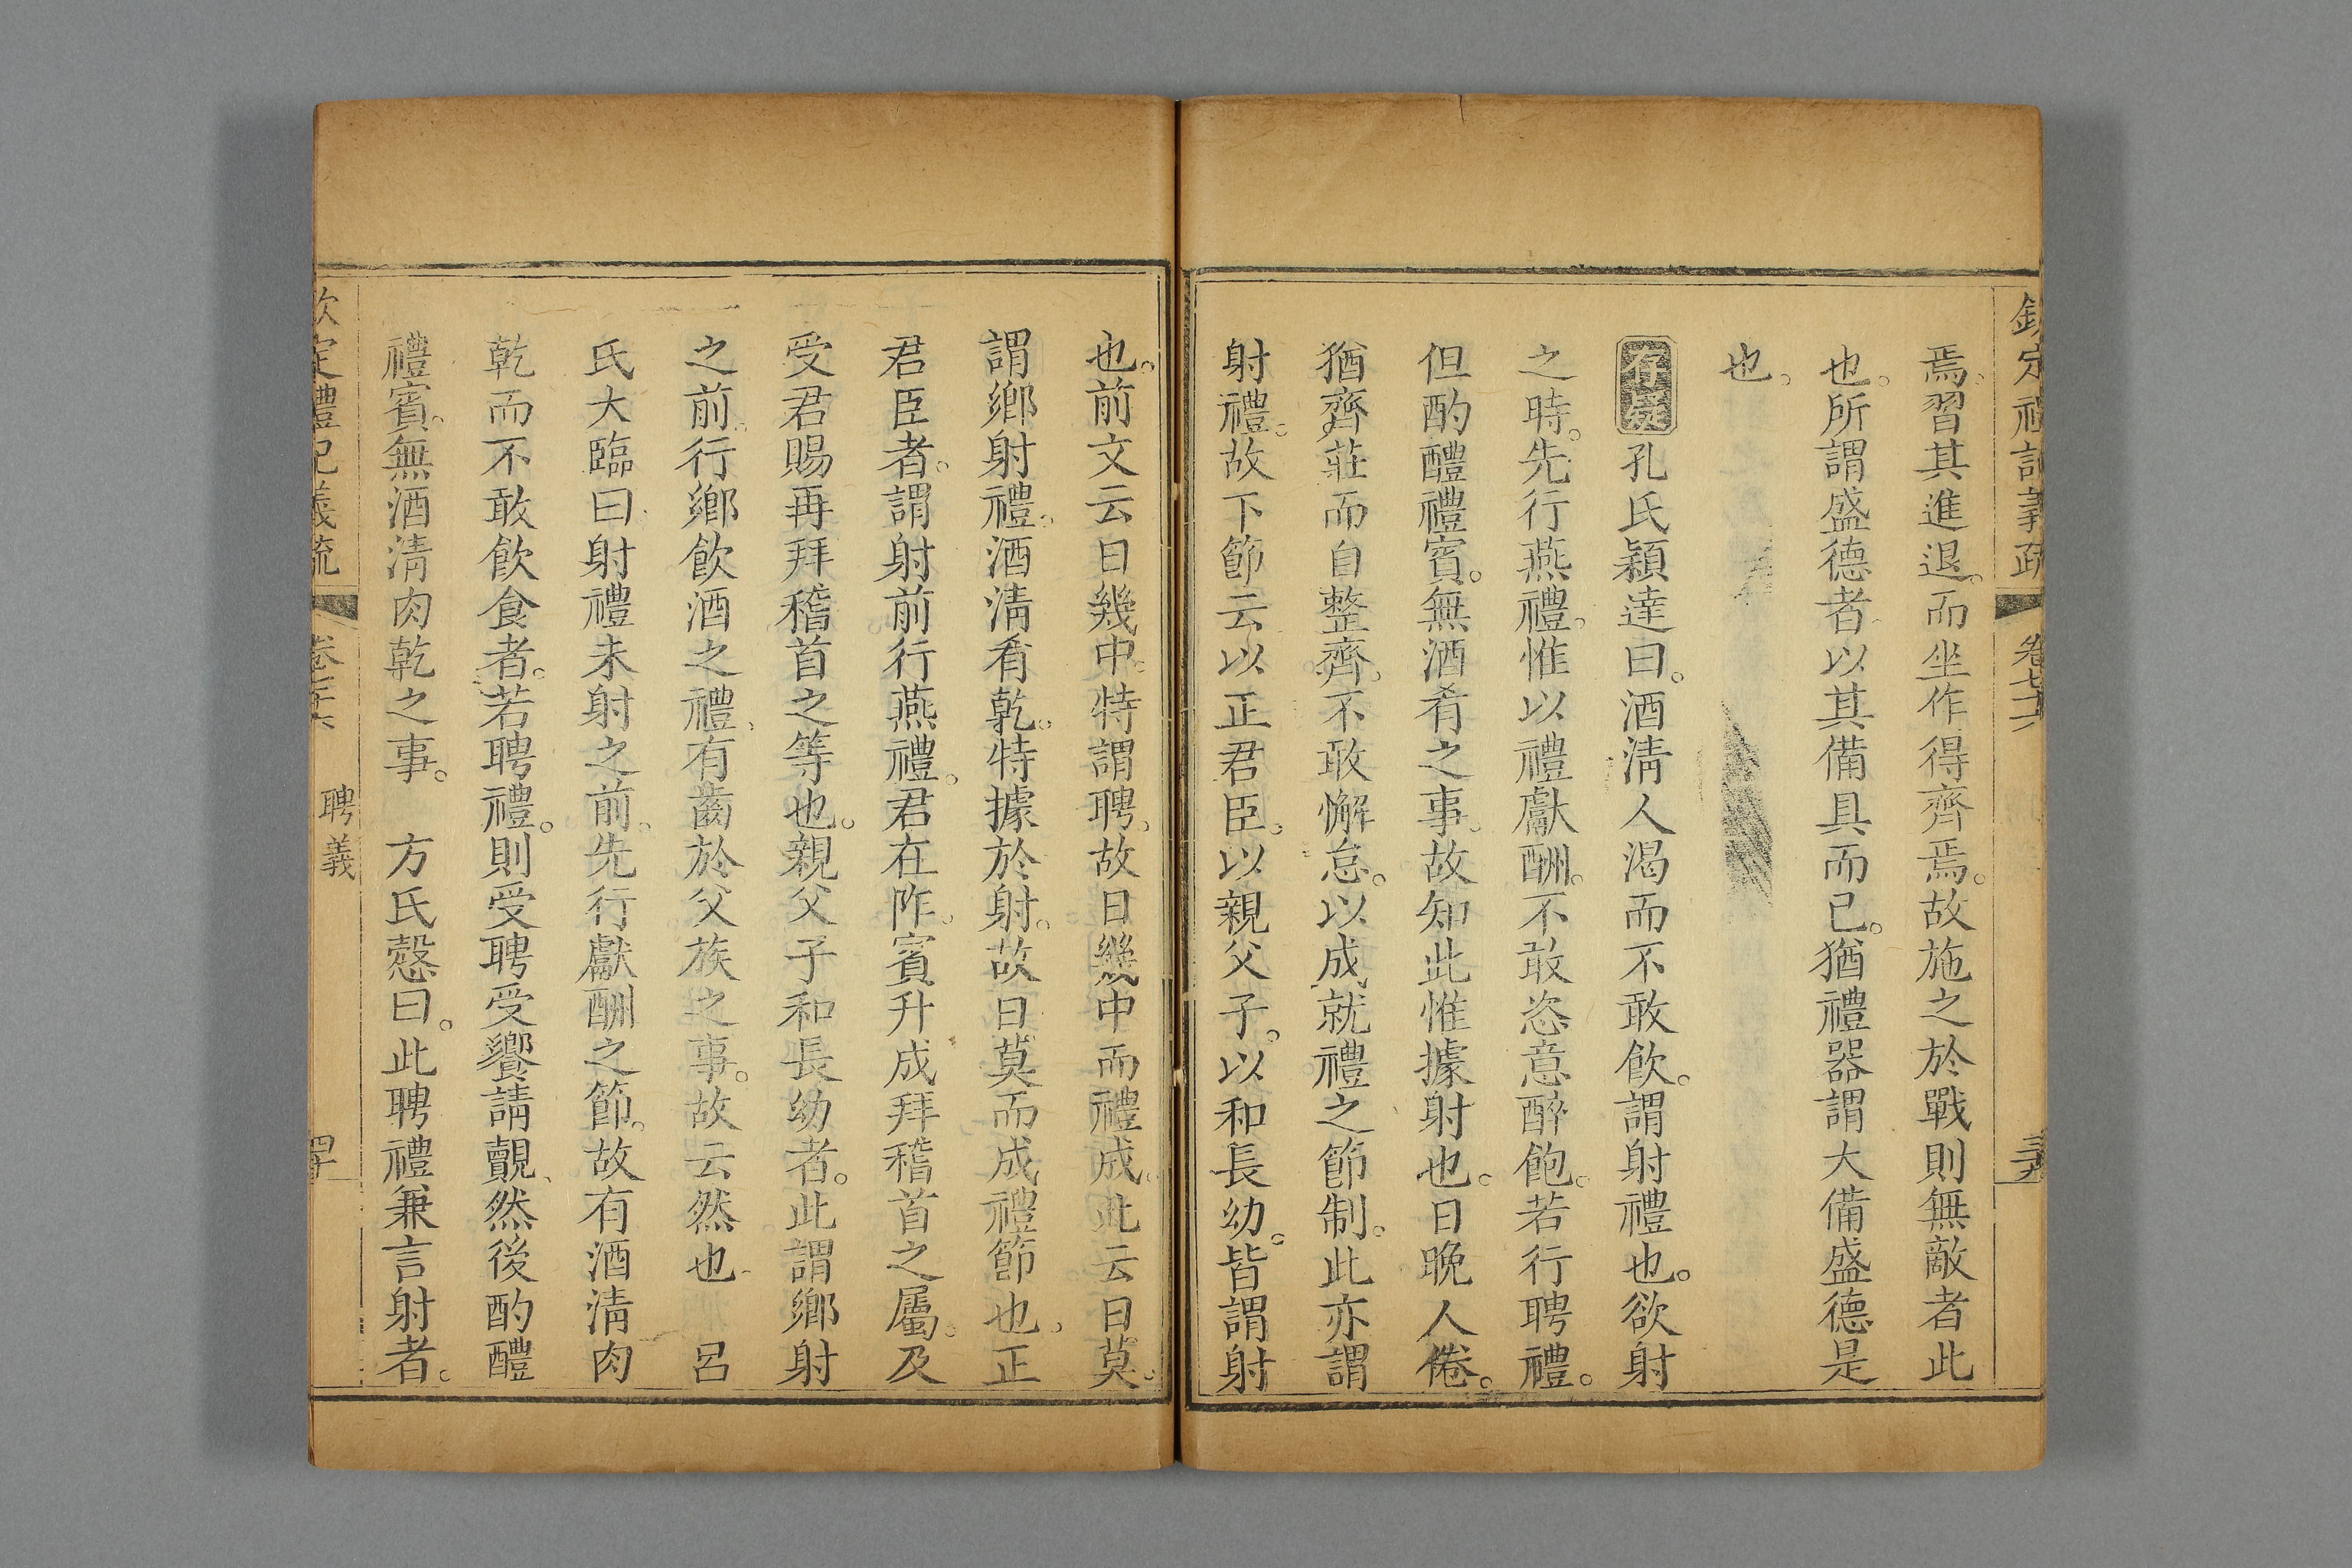 欽定禮記義疏 卷七十六 三十九
焉。習其進退。而坐作得齊焉。故施之於戰則無敵者此
也。所謂盛德者。以其備具而已。猶禮器謂大備盛德是
也。
存疑 孔氏穎達曰。酒清人渴而不敢飲。謂射禮也。欲射
之時。先行燕禮。惟以禮獻酬。不敢恣意醉飽。若行聘禮。
但酌醴禮賓。無酒肴之事。故知此惟據射也。日晚人倦。
猶齊莊而自整齊。不敢懈怠。以成就禮之節制。此亦謂
射禮。故下節云以正君臣。以親父子。以和長幼。皆謂射
也。前文云日幾中。特謂聘。故日幾中而禮成。此云日莫。
謂鄉射禮。酒清肴乾。特據於射。故日莫而成禮節也。正
君臣者。謂射前行燕禮。君在阼。賓升成拜稽首之屬。及
受君賜再拜稽首之等也。親父子和長幼者。此謂鄉射
之前。行鄉飲酒之禮。有齒於父族之事。故云然也 呂
氏大臨曰射禮未射之前。先行獻酬之節。故有酒清肉
乾而不敢飲食者。若聘禮。則受聘受饗請覿、然後酌醴
禮賓。無酒清肉乾之事。 方氏慤曰。此聘禮兼言射者。
欽定禮記義疏 卷七十六 聘義 四十